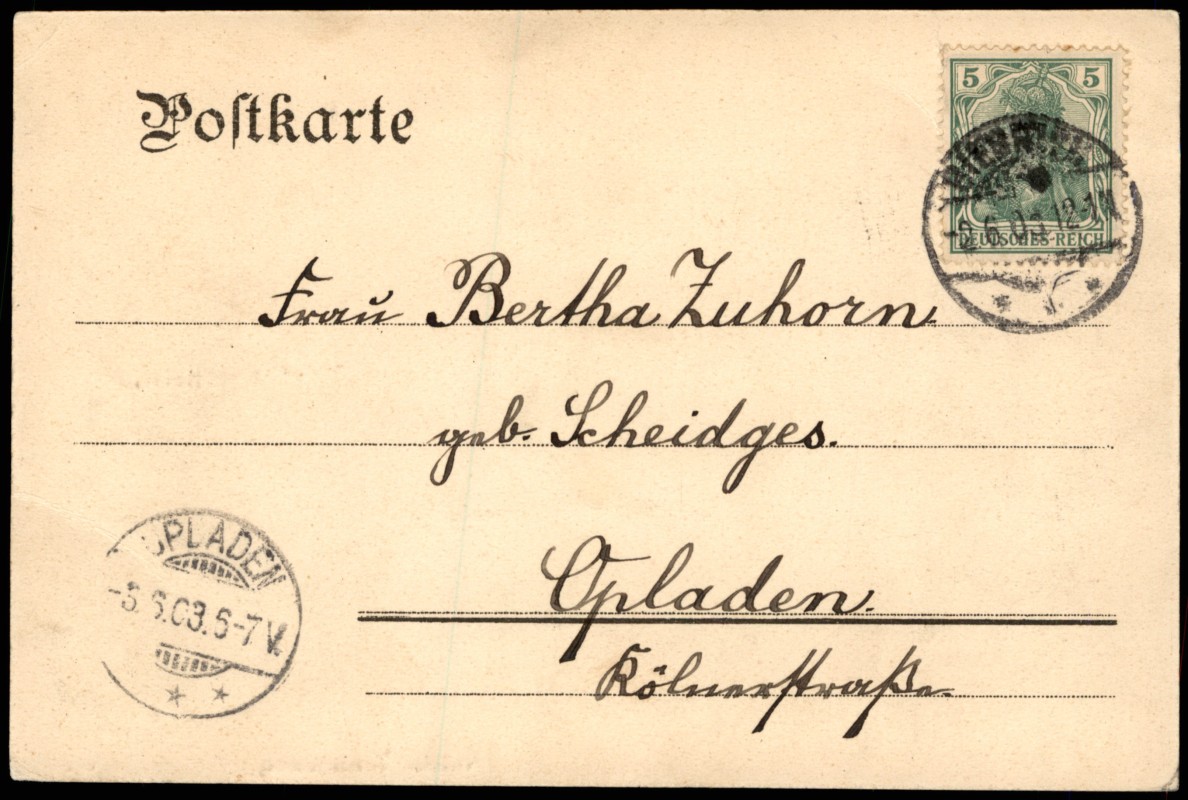 Postkarte
5 5
DEUTSCHES REICH
Frau Bertha Zuhorn
geb. Scheidges.
Opladen.
Kölnerstraße.
OPLADEN
6.03.6-7V.